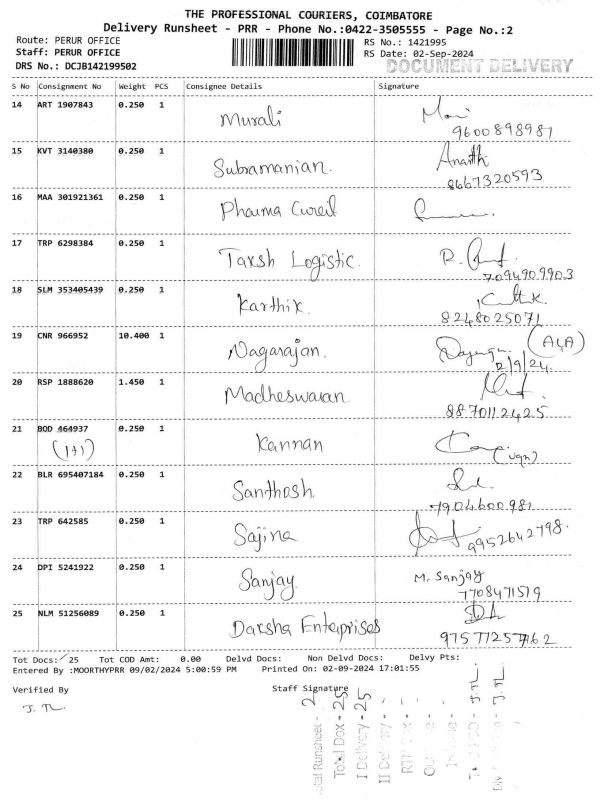 THE PROFESSIONAL COURIERS, COIMBATORE
Delivery Runsheet - PRR - Phone No.:0422-3505555 - Page No.:2
Route: PERUR OFFICE RS No.: 1421995
Staff: PERUR OFFICE RS Date: 02-Sep-2024
DRS No.: DCJB142199502 DOCUMENT DELIVERY
S No Consignment No Weight PCS Consignee Details Signature
14 ART 1907843 0.250 1 Murali
9600898981
15 KVT 3140380 0.250 1 Subramanian. Ananth
8667320593
16 MAA 301921361 0.250 1 Pharma Cureil
17 TRP 6298384 0.250 1 Taksh Logistic.
7094909903
18 SLM 353405439 0.250 1 Karthik.
8248025071
19 CNR 966952 10.400 1 Nagarajan.
2/9/24.
20 RSP 1888620 1.450 1 Madheswaran
8870112425
21 BOD 464937 0.250 1 Kannan
(1+1)
22 BLR 695407184 0.250 1 Santhosh.
7904600981
23 TRP 642585 0.250 1 Sajina
9952642798.
24 DPI 5241922 0.250 1 Sanjay M. Sanjay
7708471519
25 NLM 51256089 0.250 1 Daksha Enterprises
Tot Docs: 25 Tot COD Amt: 0.00 Delvd Docs: Non Delvd Docs: Delvy Pts:
Entered By :MOORTHYPRR 09/02/2024 5:00:59 PM Printed On: 02-09-2024 17:01:55
Verified By Staff Signature
Total Runsheet - 2
Total Dox - 25
I Delivery - 25
II Delivery -